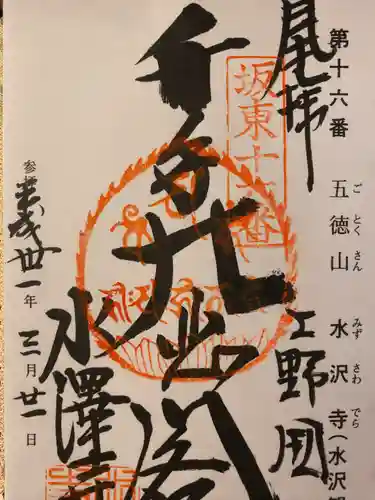 第十六番 五徳山 水沢寺(水沢
ごとくさん みずさわでら
奉拝
上野国
坂東十六番
水澤寺
参拝 平成卅一年 三月廿一日